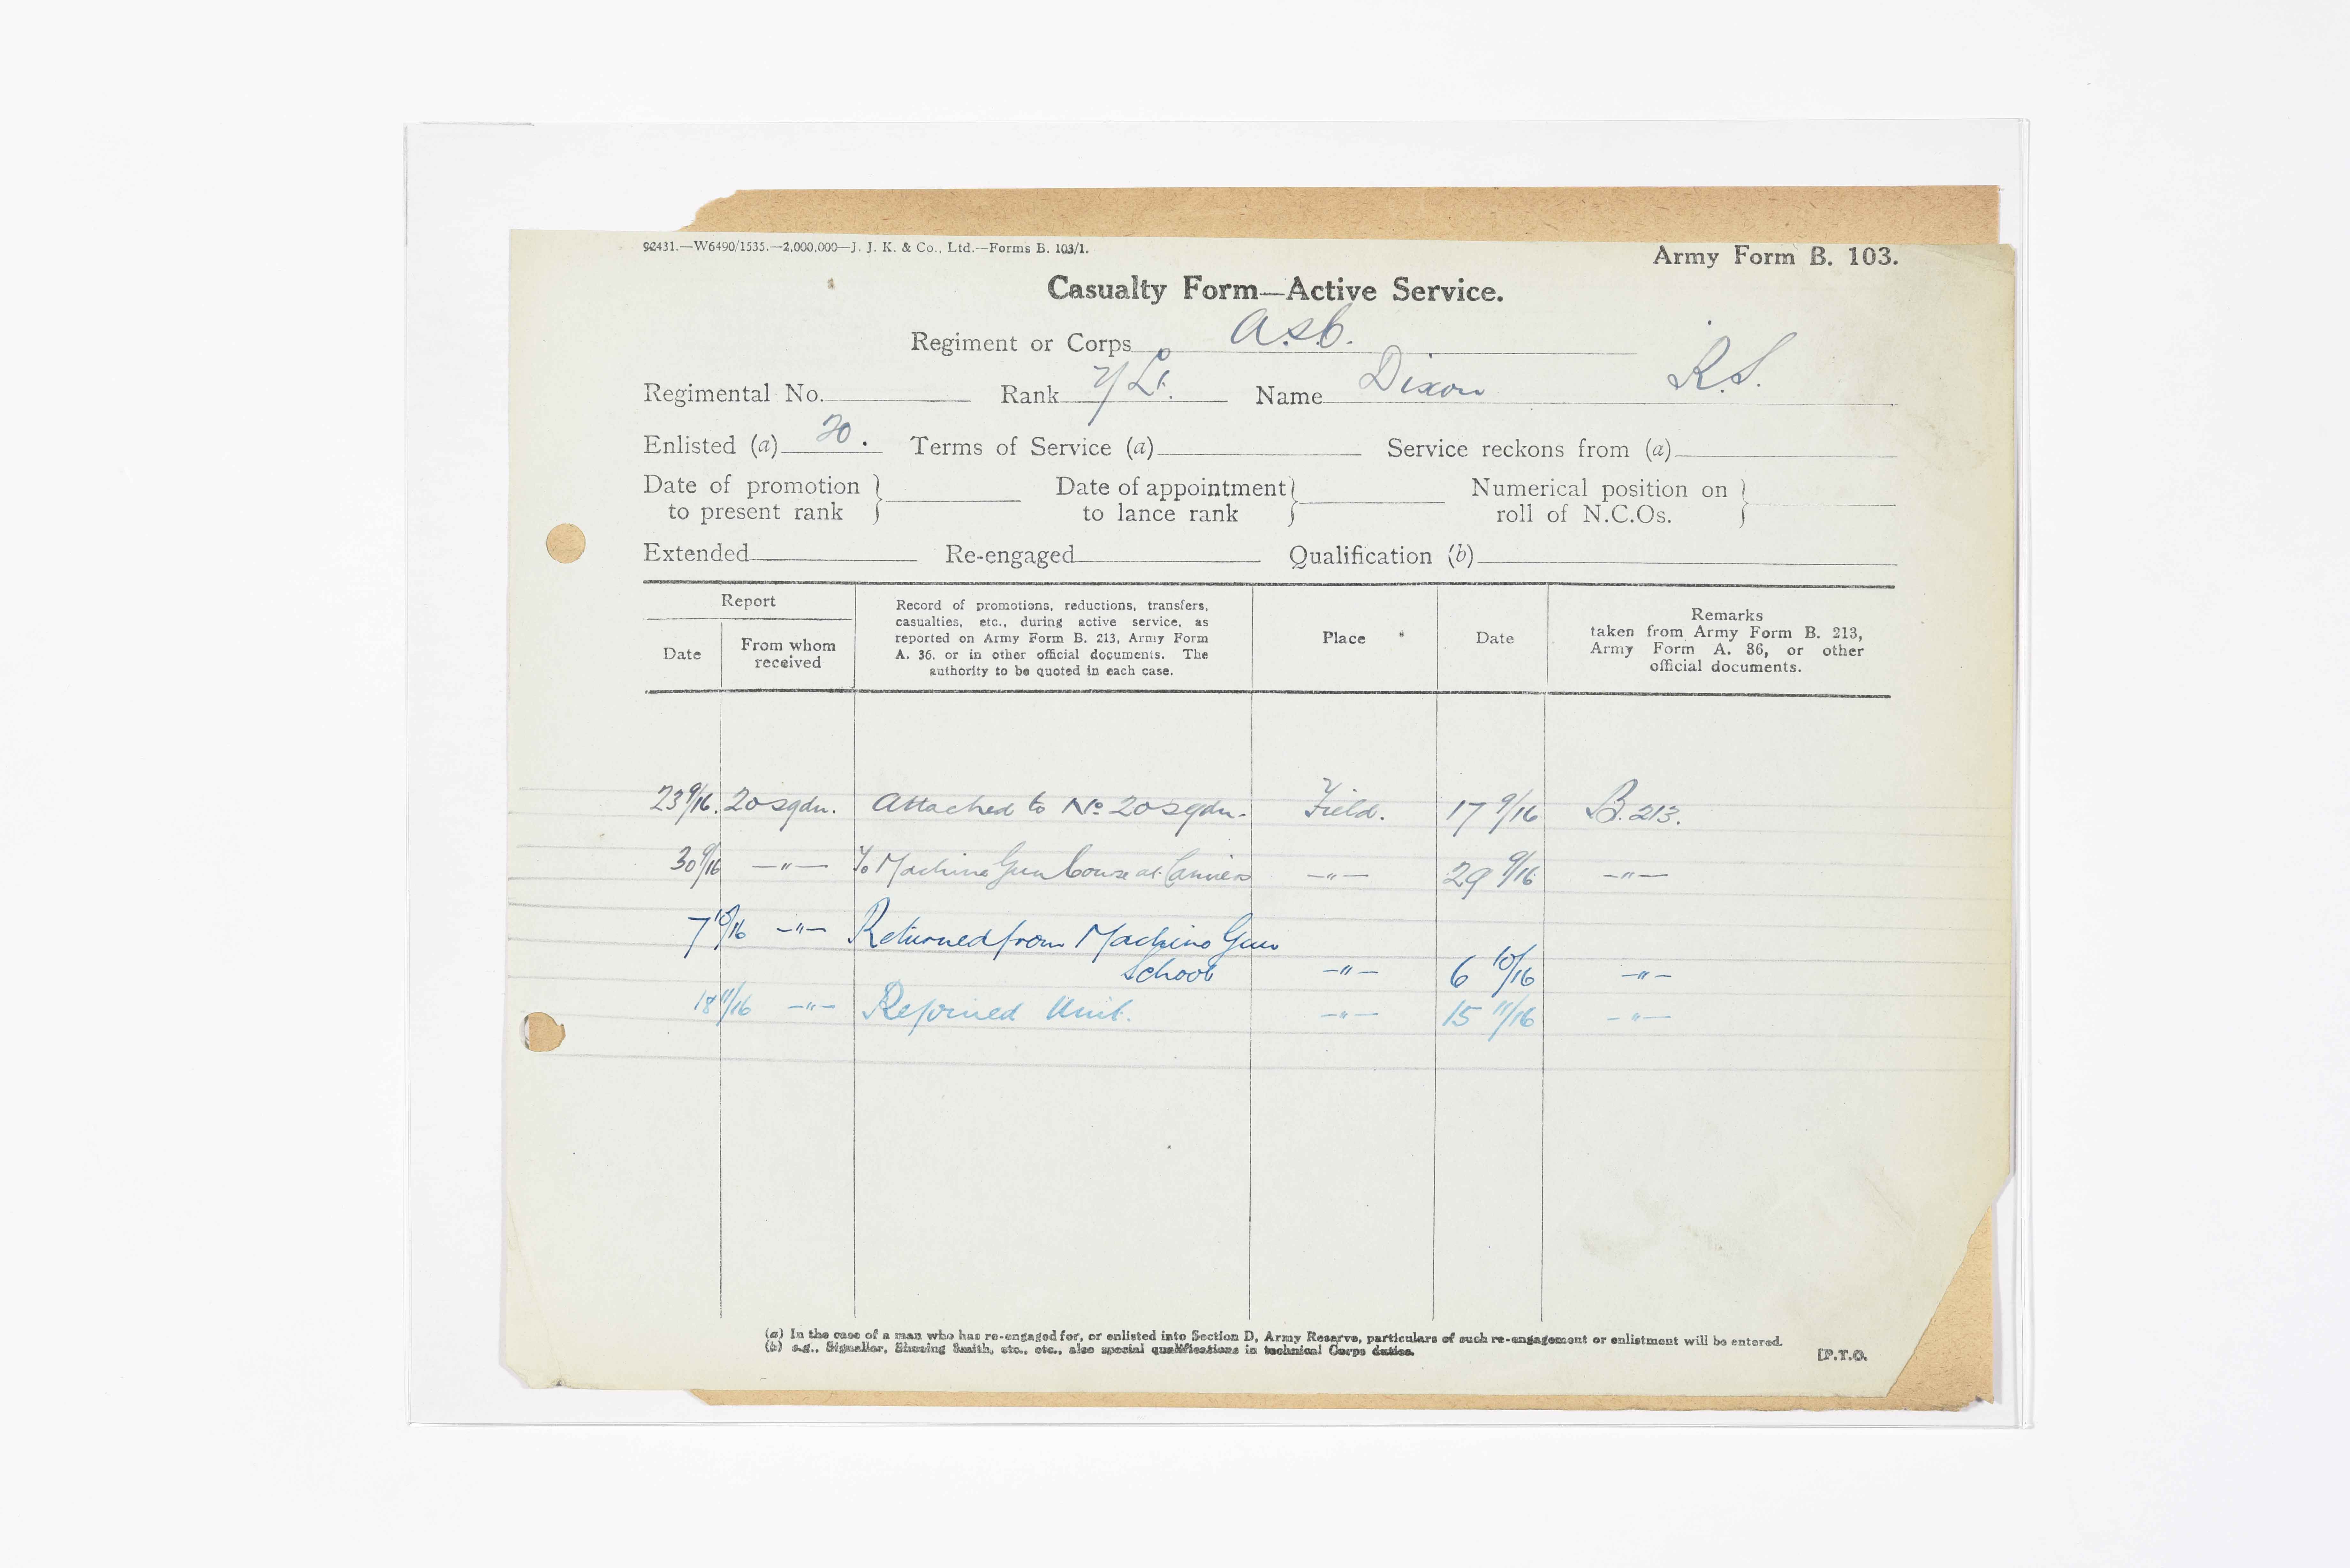 92431.—W6490/1535.—2,000,000—J. J. K. & Co., Ltd.—Forms B. 103/1.
Army Form B. 103.
Casualty Form—Active Service.
Regiment or Corps A.S.C.
Regimental No. Rank 2/Lt. Name Dixon R.S.
Enlisted (a) 20. Terms of Service (a) Service reckons from (a)
Date of promotion to present rank } Date of appointment to lance rank } Numerical position on roll of N.C.Os. }
Extended Re-engaged Qualification (b)
Report
Date
From whom received
Record of promotions, reductions, transfers,
casualties, etc., during active service, as
reported on Army Form B. 213, Army Form
A. 36, or in other official documents. The
authority to be quoted in each case.
Place
Date
Remarks
taken from Army Form B. 213,
Army Form A. 36, or other
official documents.
23 9/16. 20 Sqdn. Attached to No. 20 Sqdn. Field. 17 9/16 B. 213.
30 9/16 —"— To Machine Gun Course at Camiers —"— 29 9/16 —"—
7 10/16 —"— Returned from Machine Gun
School —"— 6 10/16 —"—
18 11/16 —"— Rejoined Unit. —"— 15 11/16 —"—
(a) In the case of a man who has re-engaged for, or enlisted into Section D, Army Reserve, particulars of such re-engagement or enlistment will be entered.
(b) e.g., Signaller, Shoeing Smith, etc., etc., also special qualifications in technical Corps duties.
[P.T.O.